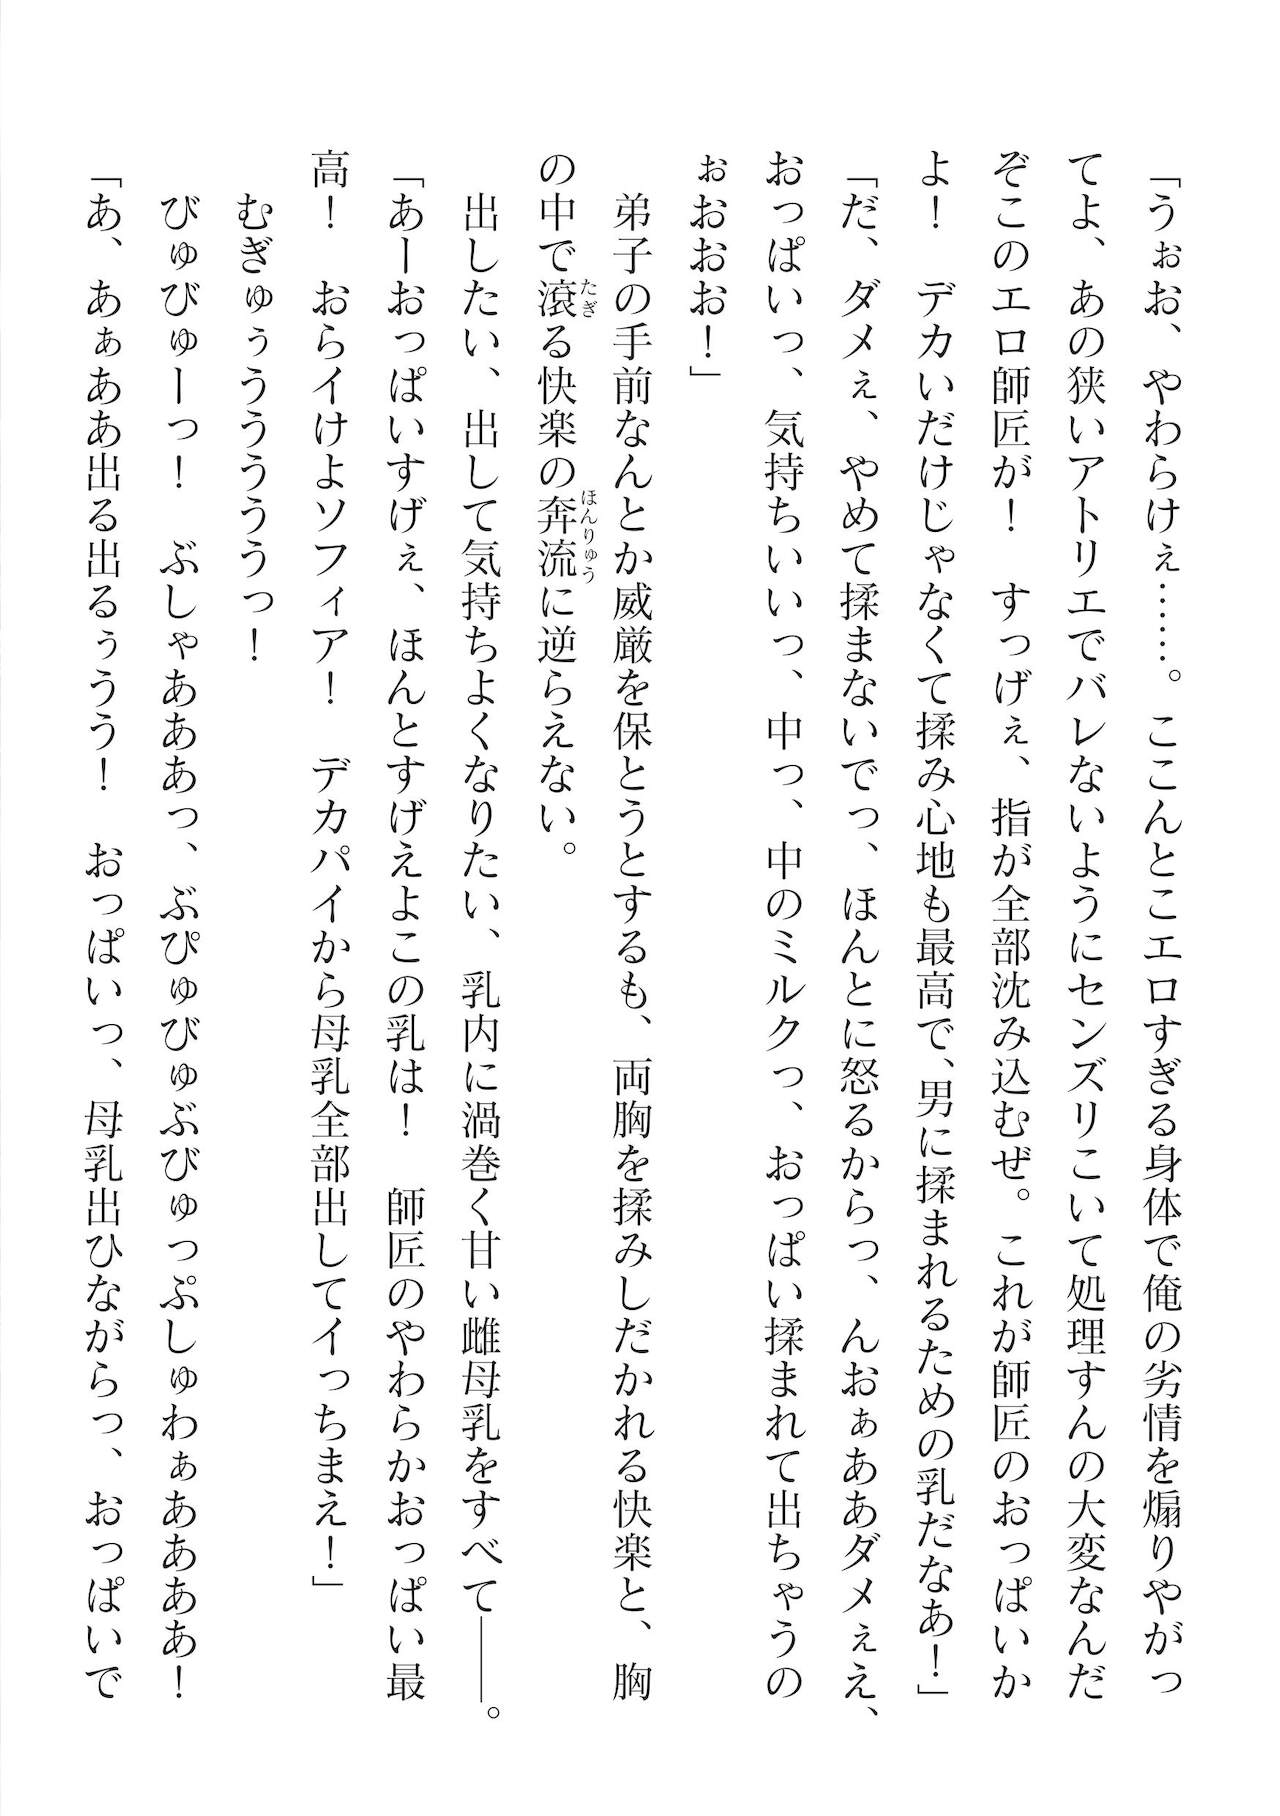 「うぉお、やわらけぇ……。ここんとこエロすぎる身体で俺の劣情を煽りやがっ
てよ、あの狭いアトリエでバレないようにセンズリこいて処理すんの大変なんだ
ぞこのエロ師匠が！　すっげぇ、指が全部沈み込むぜ。これが師匠のおっぱいか
よ！　デカいだけじゃなくて揉み心地も最高で、男に揉まれるための乳だなあ！」
「だ、ダメぇ、やめて揉まないでっ、ほんとに怒るからっ、んおぁああダメぇえ、
おっぱいっ、気持ちいいっ、中っ、中のミルクっ、おっぱい揉まれて出ちゃうの
ぉおおお！」
　弟子の手前なんとか威厳を保とうとするも、両胸を揉みしだかれる快楽と、胸
の中で滾たぎる快楽の奔流ほんりゅうに逆らえない。
　出したい、出して気持ちよくなりたい、乳内に渦巻く甘い雌母乳をすべて――。
「あーおっぱいすげぇ、ほんとすげえよこの乳は！　師匠のやわらかおっぱい最
高！　おらイけよソフィア！　デカパイから母乳全部出してイっちまえ！」
　むぎゅぅうううううっ！
　びゅびゅーっ！　ぶしゃあああっ、ぶぴゅびゅぶびゅっぷしゅわぁああああ！
「あ、あぁああ出る出るぅうう！　おっぱいっ、母乳出ひながらっ、おっぱいで